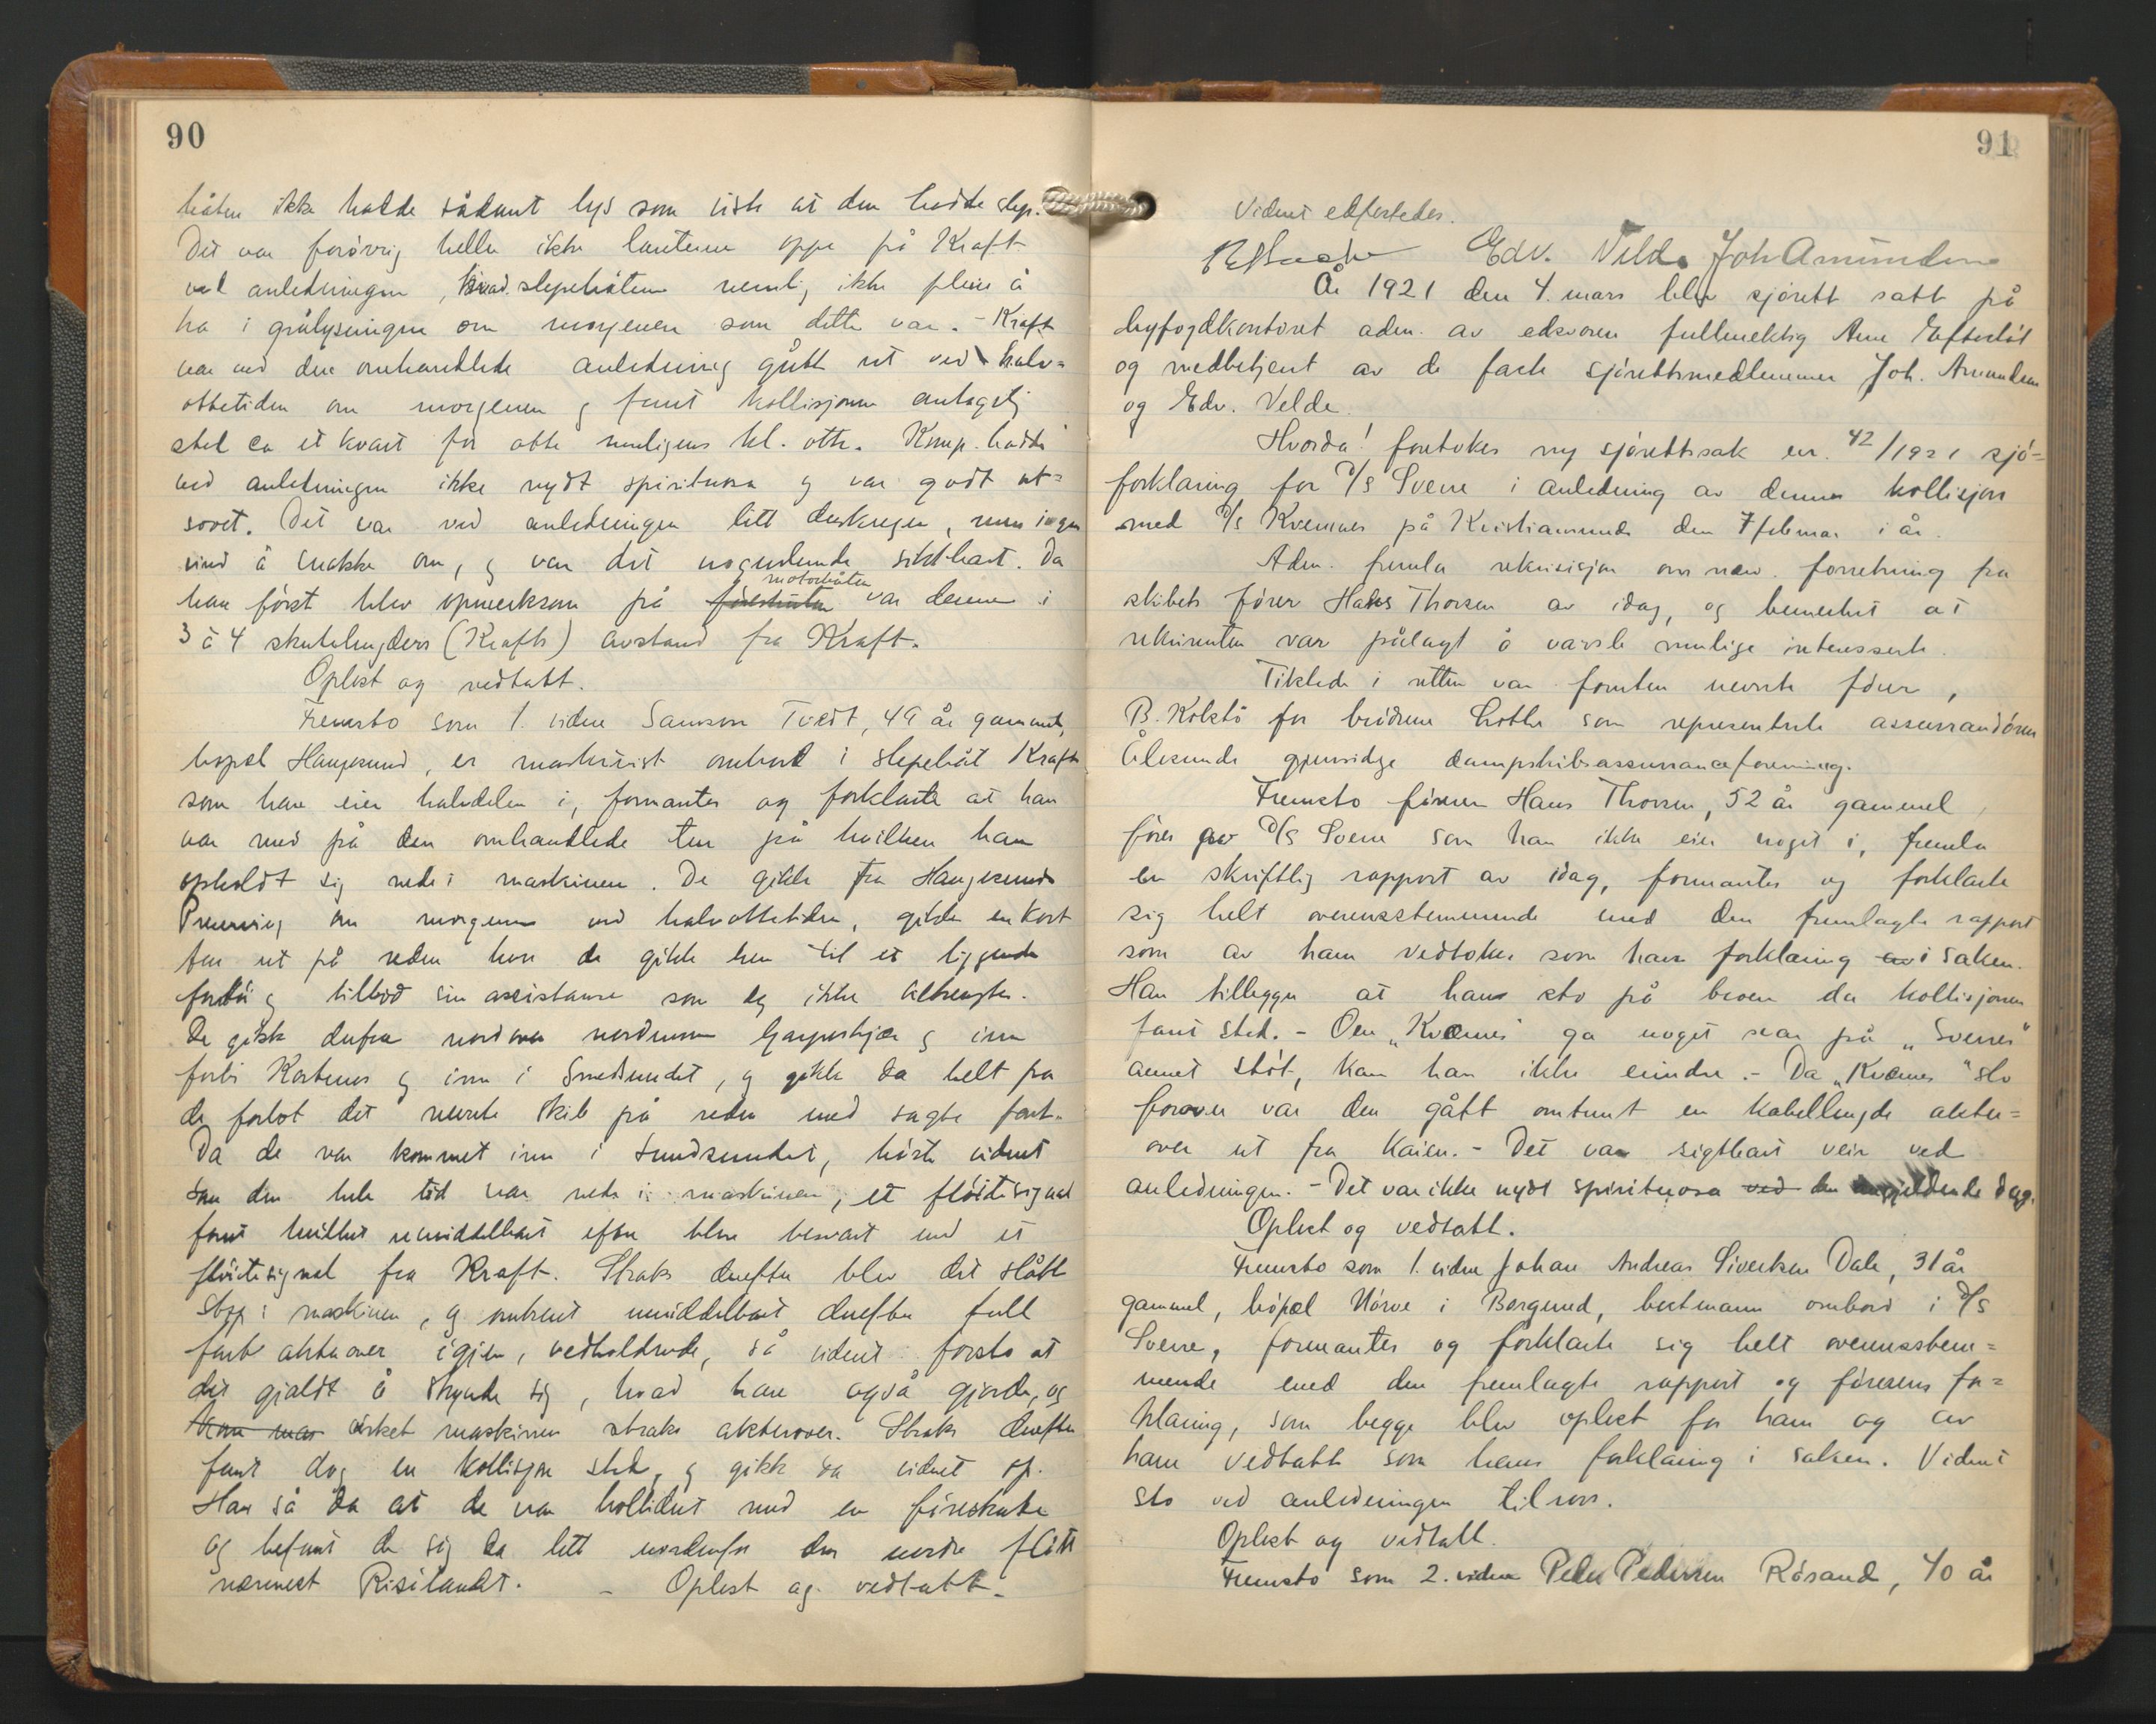 90
båten ikke hadde sådant lys som viste at den hadde slep.
Det var forøvrig heller ikke lanterne oppe på Kraft
ved anledningen, hvad slepebåtene nemlig ikke pleier å
ha i grålysningen om morgenen som dette var. - Kraft
var ved den omhandlede anledning gått ut ved halv-
ottetiden om morgenen og fant kollisjonen antagelig
sted ca et kvart før otte muligens kl. otte. Komp. hadde
ved anledningen ikke nydt spirituosa og var godt ut-
sovet. Det var ved anledningen litt duskregn, men ingen
vind å snakke om, og var det nogenlunde siktbart. Da
han først blev opmerksom på føreskuten motorbåten var denne i
3 à 4 skutelengders (Krafts) avstand fra Kraft.
Oplest og vedtatt.
Fremsto som 1. vidne Samson Tvedt, 49 år gammel,
bopæl Haugesund, er maskinist ombord i slepebåt Kraft
som han eier halvdelen i, formantes og forklarte at han
var med på den omhandlede tur på hvilken han
opholdt sig nede i maskinen. De gikk fra Haugesund
om morgenen ved halvottetiden, gikk en kort
tur ut på reden hvor de gikk hen til et liggende
fartøi og tilbød sin assistanse som ei ikke tiltrengtes.
De gikk derfra nordover nordenom Gaaperskjær og inn
forbi Kortenes og inn i Smedsundet, og gikk da helt fra
de forlot det nevnte skib på reden med sagte fart.
Da de var kommet inn i Smedsundet, hørte vidnet
som den hele tid var nede i maskinen, et fløitesignal
fant hvilket umiddelbart efter blev besvart med et
fløitesignal fra Kraft. Straks derefter blev det slått
stopp i maskinen, og omtrent umiddelbart derefter full
fart akterover igjen, vedholdende, så vidnet forsto at
det gjaldt å skynde sig, hvad han også gjorde, og
kom man virket maskinen straks akterover. Straks derefter
fant dog en kollisjon sted, og gikk da vidnet op.
Han så da at de var kollidert med en føreskute
og befant de sig da litt nordenfor den nordre flått
nærmest Risøilandet. - Oplest og vedtatt.
91
Vidnet edfestedes.
Edv. Velde Joh Amundsen
År 1921 den 4. mars blev sjørett satt på
byfogdkontoret adm. av edsvoren fullmektig Arne Eftestøl
og medbetjent av de faste sjørettsmedlemmer Joh. Amundsen
og Edv. Velde.
Hvorda! foretokes ny sjørettssak nr. 42/1921 sjø-
forklaring for D/S Sverre i anledning av dennes kollisjon
med D/s Kvernes på Kristiansund den 7 februar i år.
Adm. fremla rekvisisjon om nærv. forretning fra
skibets fører Hans Thorsen av idag, og bemerket at
rekvirenten var pålagt å varsle mulige interesserte.
Tilstede i retten var foruten nevnte fører,
B. Kolstø for brødrene Lothe som representerte assurandøren
Ålesunds gjensidige dampskibsassuranceforening.
Fremsto føreren Hans Thorsen, 52 år gammel,
fører av D/S Sverre som han ikke eier noget i, fremla
en skriftlig rapport av idag, formantes og forklarte
sig helt overensstemmende med den fremlagte rapport
som av ham vedtokes som hans forklaring av i saken.
Han tillegger at han sto på broen da kollisjonen
fant sted. - Om "Kvernes" ga noget svar på "Sverres"
annet støt, kan han ikke erindre. - Da "Kvernes" slo
forover var den gått omtrent en kabellengde akter-
over ut fra kaien. - Det var sigtbart veir ved
anledningen. - Det var ikke nydt spirituosa ved den angjeldende dag.
Oplest og vedtatt.
Fremsto som 1. vidne Johan Andreas Sivertsen Dale, 31 år
gammel, bopæl Nørve i Borgund, bestmann ombord i D/S
Sverre, formantes og forklarte sig helt overensstem-
mende med den fremlagte rapport og førerens for-
klaring, som begge blev oplest for ham og av
ham vedtatt som hans forklaring i saken. Vidnet
sto ved anledningen til rors.
Oplest og vedtatt.
Fremsto som 2. vidne Peder Pedersen Røsand, 40 år